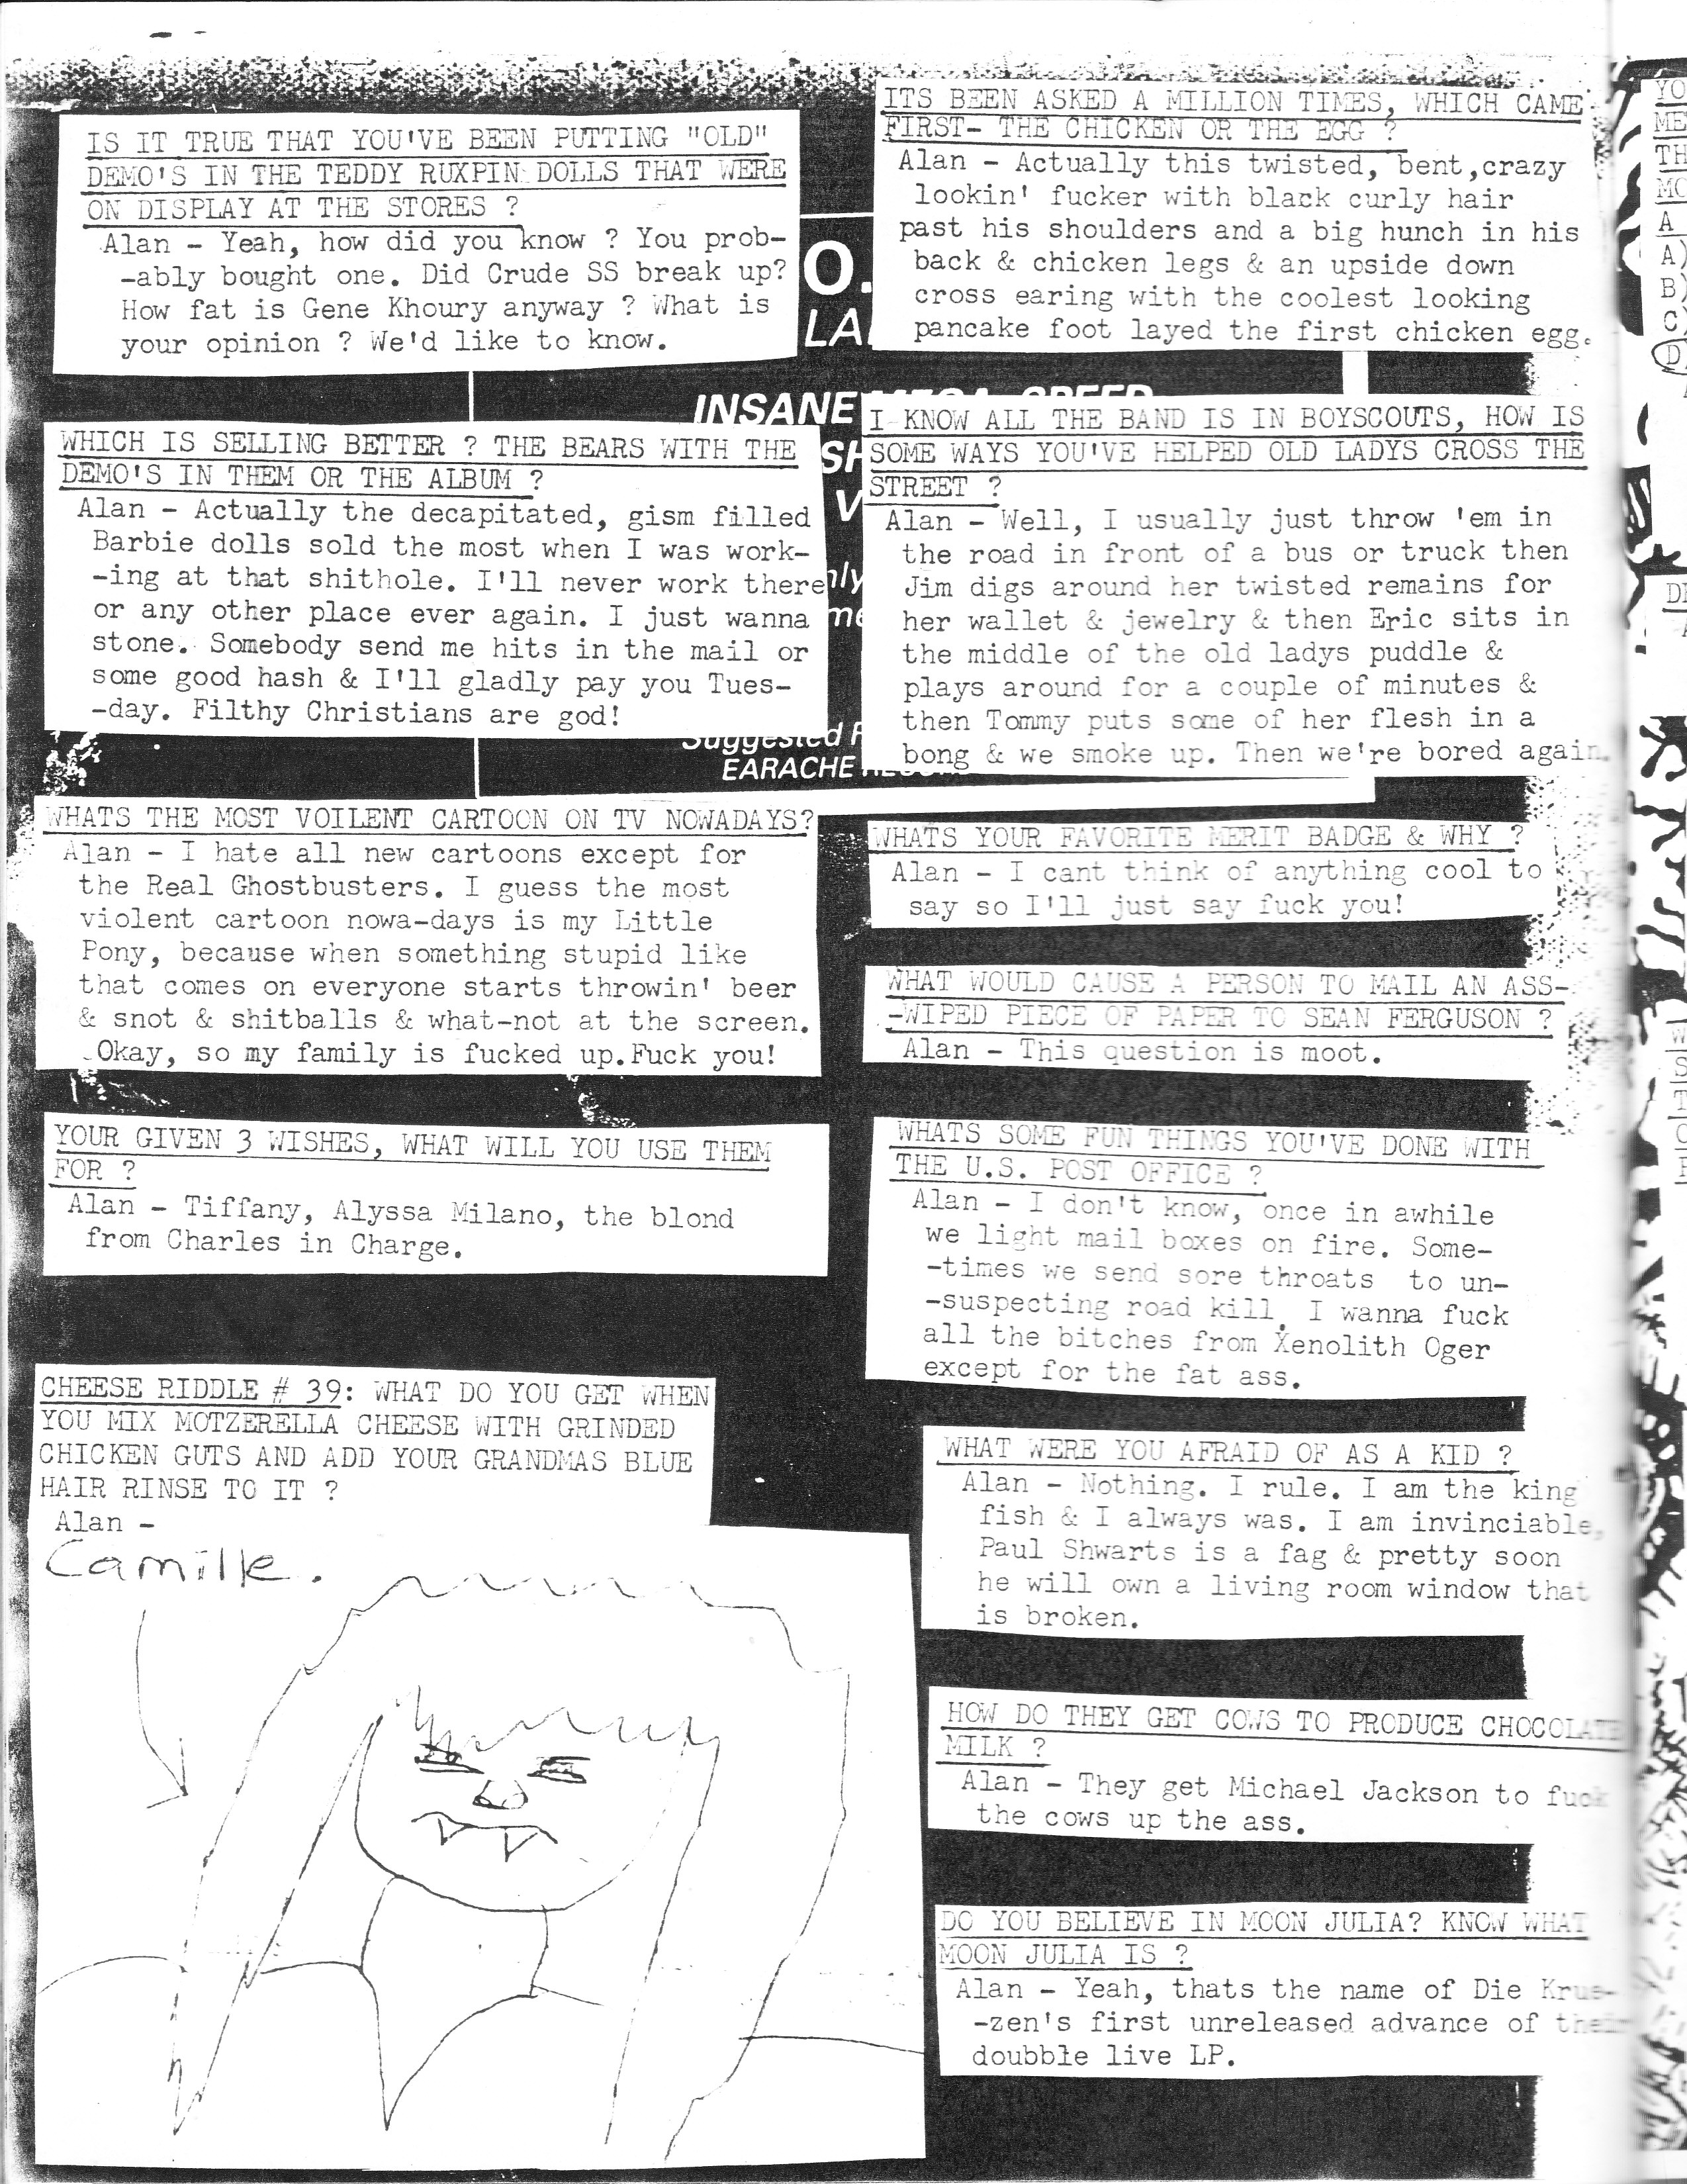 IS IT TRUE THAT YOU'VE BEEN PUTTING "OLD"
DEMO'S IN THE TEDDY RUXPIN DOLLS THAT WERE
ON DISPLAY AT THE STORES ?
Alan - Yeah, how did you know ? You prob-
-ably bought one. Did Crude SS break up?
How fat is Gene Khoury anyway ? What is
your opinion ? We'd like to know.
WHICH IS SELLING BETTER ? THE BEARS WITH THE
DEMO'S IN THEM OR THE ALBUM ?
Alan - Actually the decapitated, gism filled
Barbie dolls sold the most when I was work-
-ing at that shithole. I'll never work there
or any other place ever again. I just wanna
stone. Somebody send me hits in the mail or
some good hash & I'll gladly pay you Tues-
-day. Filthy Christians are god!
WHATS THE MOST VOILENT CARTOON ON TV NOWADAYS?
Alan - I hate all new cartoons except for
the Real Ghostbusters. I guess the most
violent cartoon nowa-days is my Little
Pony, because when something stupid like
that comes on everyone starts throwin' beer
& snot & shitballs & what-not at the screen.
Okay, so my family is fucked up.Fuck you!
YOUR GIVEN 3 WISHES, WHAT WILL YOU USE THEM
FOR ?
Alan - Tiffany, Alyssa Milano, the blond
from Charles in Charge.
CHEESE RIDDLE # 39: WHAT DO YOU GET WHEN
YOU MIX MOTZERELLA CHEESE WITH GRINDED
CHICKEN GUTS AND ADD YOUR GRANDMAS BLUE
HAIR RINSE TO IT ?
Alan -
Camille.
O.
LA
INSANE MEGA-SPEED
SH
V
nly
me
Suggested
EARACHE
ITS BEEN ASKED A MILLION TIMES, WHICH CAME
FIRST- THE CHICKEN OR THE EGG ?
Alan - Actually this twisted, bent,crazy
lookin' fucker with black curly hair
past his shoulders and a big hunch in his
back & chicken legs & an upside down
cross earing with the coolest looking
pancake foot layed the first chicken egg.
I KNOW ALL THE BAND IS IN BOYSCOUTS, HOW IS
SOME WAYS YOU'VE HELPED OLD LADYS CROSS THE
STREET ?
Alan - Well, I usually just throw 'em in
the road in front of a bus or truck then
Jim digs around her twisted remains for
her wallet & jewelry & then Eric sits in
the middle of the old ladys puddle &
plays around for a couple of minutes &
then Tommy puts some of her flesh in a
bong & we smoke up. Then we're bored again.
WHATS YOUR FAVORITE MERIT BADGE & WHY ?
Alan - I cant think of anything cool to
say so I'll just say fuck you!
WHAT WOULD CAUSE A PERSON TO MAIL AN ASS-
-WIPED PIECE OF PAPER TO SEAN FERGUSON ?
Alan - This question is moot.
WHATS SOME FUN THINGS YOU'VE DONE WITH
THE U.S. POST OFFICE ?
Alan - I don't know, once in awhile
we light mail boxes on fire. Some-
-times we send sore throats to un-
-suspecting road kill. I wanna fuck
all the bitches from Xenolith Oger
except for the fat ass.
WHAT WERE YOU AFRAID OF AS A KID ?
Alan - Nothing. I rule. I am the king
fish & I always was. I am invinciable,
Paul Shwarts is a fag & pretty soon
he will own a living room window that
is broken.
HOW DO THEY GET COWS TO PRODUCE CHOCOLATE
MILK ?
Alan - They get Michael Jackson to fuck
the cows up the ass.
DO YOU BELIEVE IN MOON JULIA? KNOW WHAT
MOON JULIA IS ?
Alan - Yeah, thats the name of Die Krue-
-zen's first unreleased advance of their
doubble live LP.
YO
ME
TH
MO
A
A)
B)
C)
D